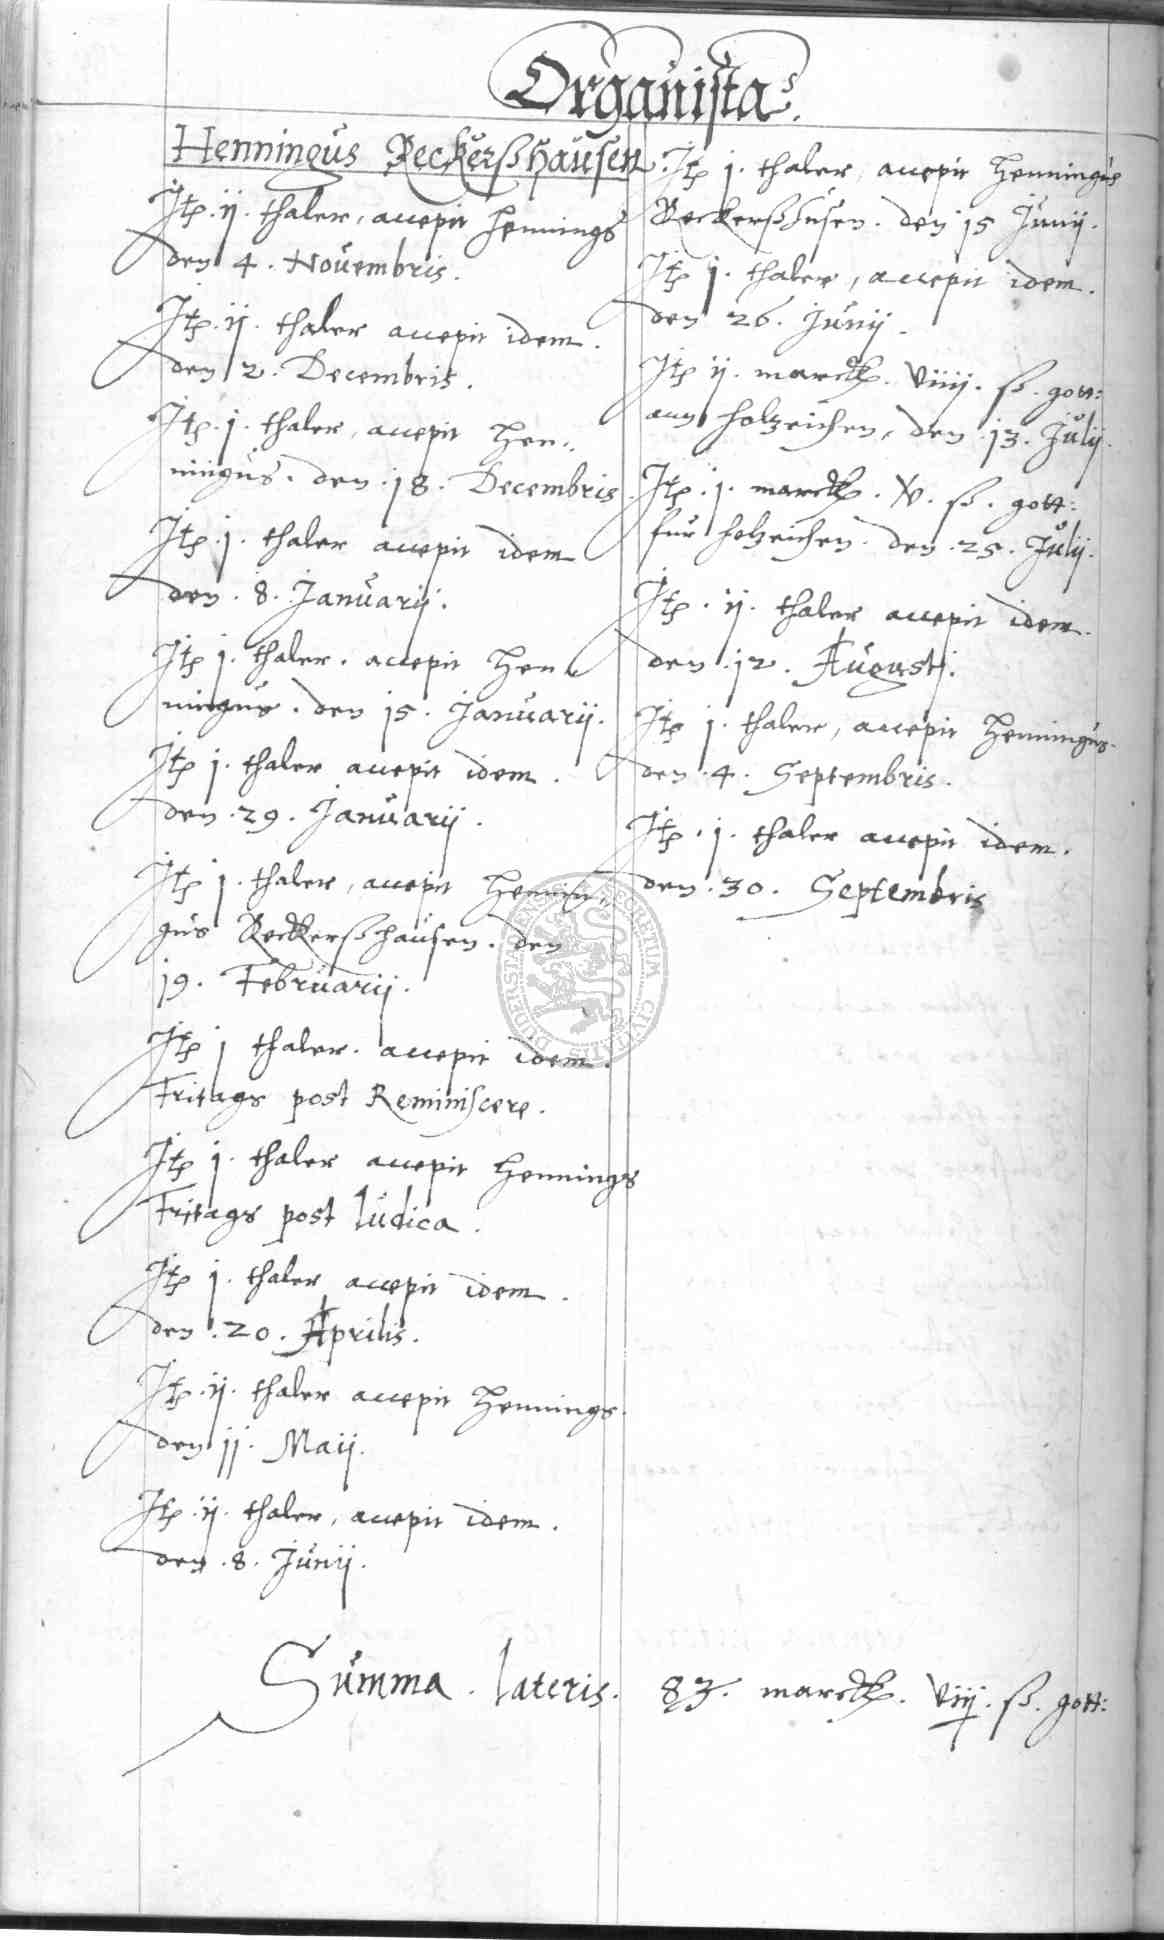 Organista.
Henningus Reckerßhausen
Itē. ij. thaler, accepit Hennings
den 4. Novembris.
Itē. ij. thaler accepit idem.
den 2. Decembris.
Itē. j. thaler, accepit Hen-
ningus. den .18. Decembris
Itē. j. thaler accepit idem
den .8. Januarij.
Itē j. thaler. accepit Hen
ningus. den 15. Januarij.
Itē j. thaler accepit idem.
den .29. Januarij.
Itē j. thaler, accepit Hennin
gus Reckerßhausen. den
19. Februarij.
Itē j thaler. accepit idem.
Fritags post Reminiscere.
Itē j. thaler accepit Hennings
Fritags post Iudica.
Itē j. thaler accepit idem.
den .20. Aprilis.
Itē .ij. thaler accepit Hennings.
den 11. Maij.
Itē .ij. thaler, accepit idem.
den .8. Junij.
Itē j. thaler, accepit Henningus
Reckerßhusen. den 15 Junij.
Itē j. thaler, accepit idem.
den 26. Junij.
Itē ij. marck. viiij. ß. gott:
ann holtzeichen, den .13. Julij.
Itē .j. marck. v. ß. gott:
fur holzeichen. den .25. Julij.
Itē. ij. thaler accepit idem.
den .12. Augusti.
Itē j. thaler, accepit Henningus.
den .4. Septembris.
Itē .j. thaler accepit idem.
den .30. Septembris
Summa. lateris. 83. marck. viij. ß. gott:
SECRETUM CIVITATIS DUDERSTADENSIS